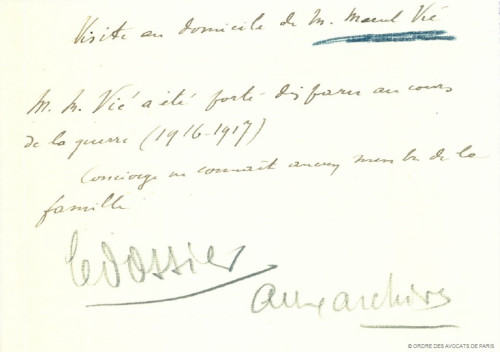 Visite au domicile de M. Marcel Vié
M. M. Vié a été porté disparu au cours
de la guerre (1916-1917)
Concierge ne connaît aucun membre de la
famille
le dossier
aux archives
© ORDRE DES AVOCATS DE PARIS